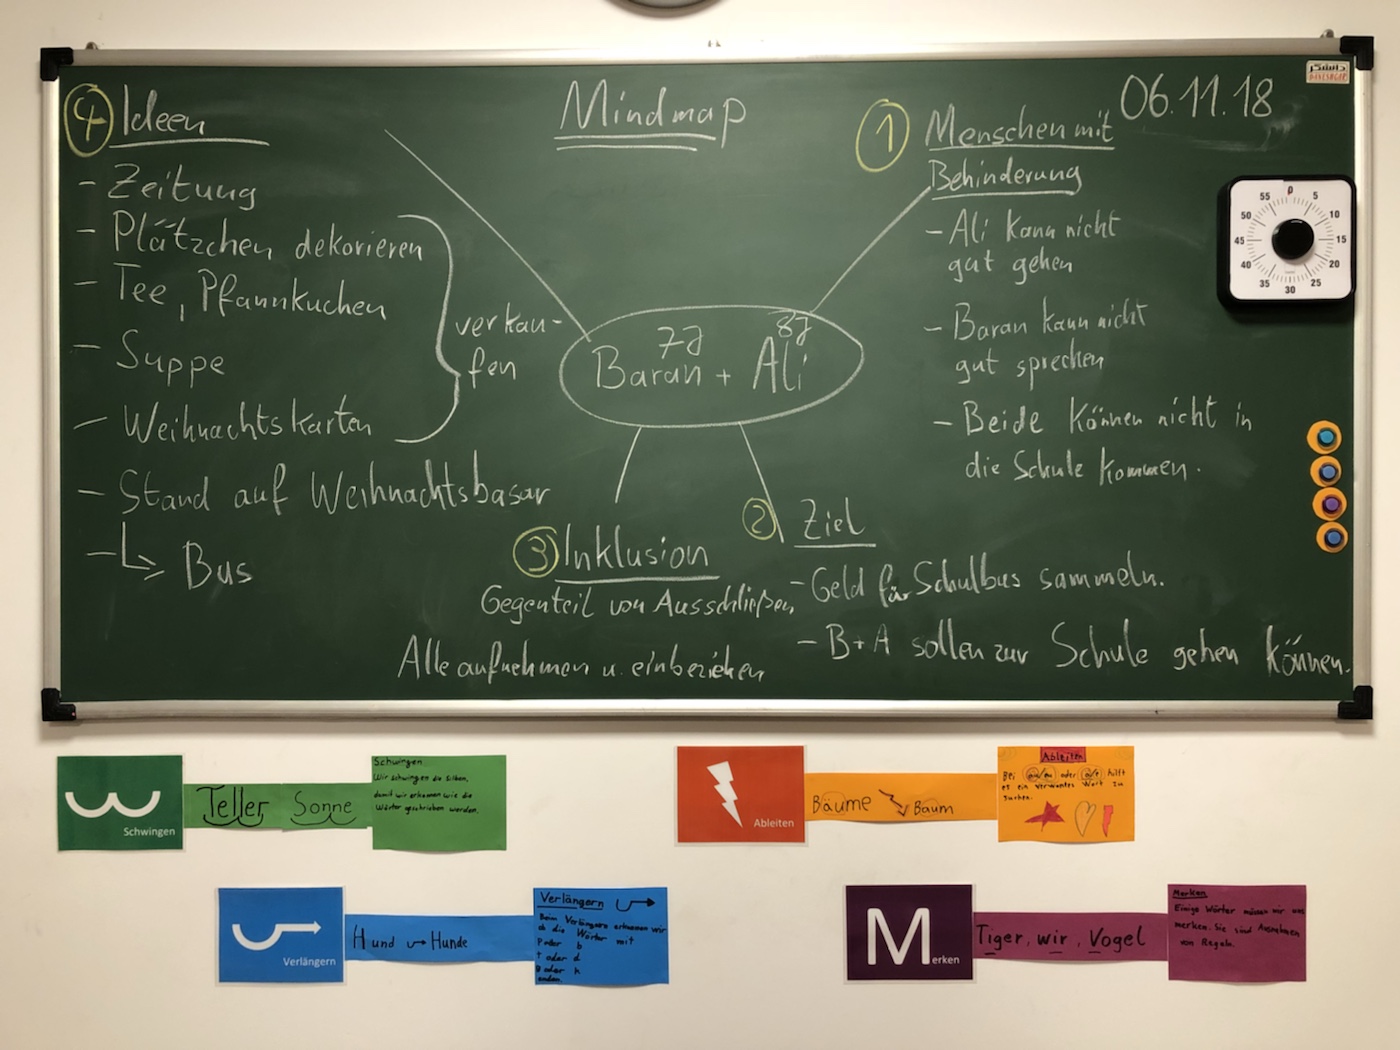 Mindmap
06.11.18
دانشگر
DANESHGAR
4 Ideen
- Zeitung
- Plätzchen dekorieren
- Tee, Pfannkuchen
- Suppe
- Weihnachtskarten
verkau-
fen
- Stand auf Weihnachtsbasar
Bus
7J 8J
Baran + Ali
1 Menschen mit
Behinderung
- Ali kann nicht
gut gehen
- Baran kann nicht
gut sprechen
- Beide können nicht in
die Schule kommen.
2 Ziel
- Geld für Schulbus sammeln.
- B+A sollen zur Schule gehen können.
3 Inklusion
Gegenteil von Ausschließen
Alle aufnehmen u. einbeziehen
0 5 10 15 20 25 30 35 40 45 50 55
Schwingen
Teller Sonne
Schwingen
Wir schwingen die Silben,
damit wir erkennen wie die
Wörter geschrieben werden.
Ableiten
Bäume Baum
Ableiten
Bei äu/eu oder ä/e hilft
es ein verwandtes Wort zu
suchen.
Verlängern
Hund Hunde
Verlängern
Beim Verlängern erkennen wir
ob die Wörter mit
p oder b
t oder d
g oder k
enden.
Merken
Tiger, wir, Vogel
Merken
Einige Wörter müssen wir uns
merken. Sie sind Ausnahmen
von Regeln.